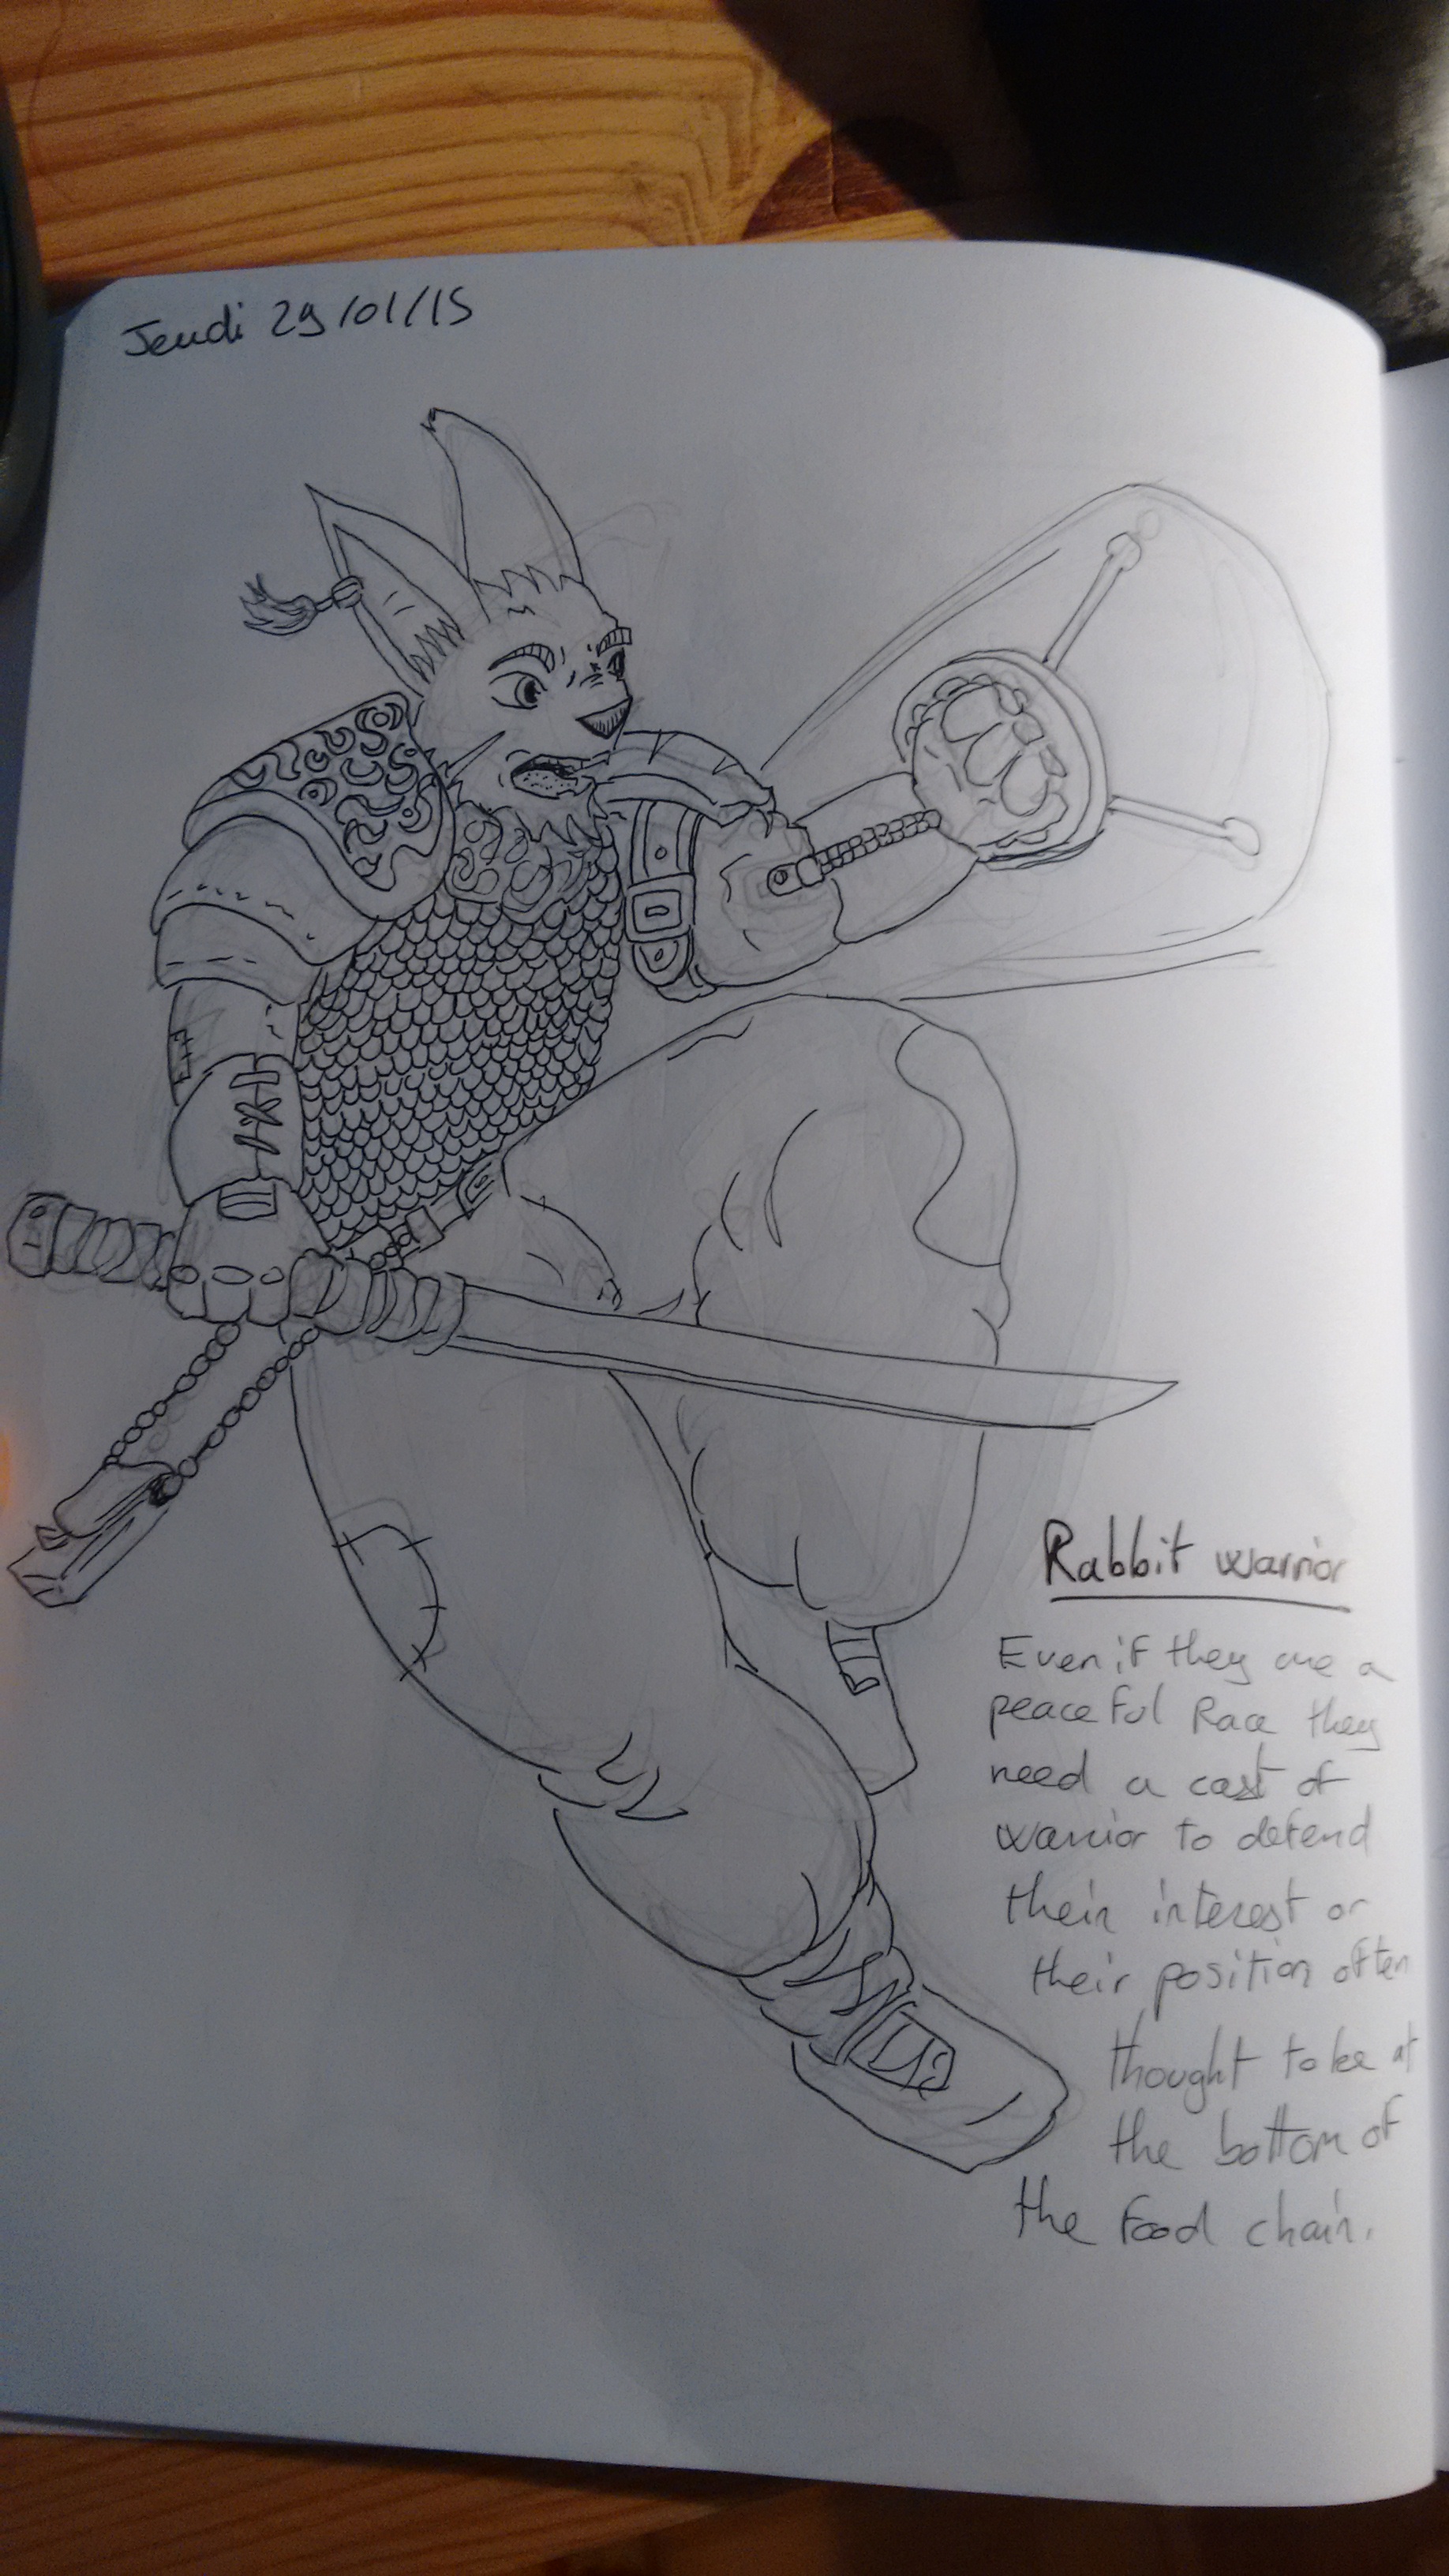 Jeudi 29/01/15
Rabbit warrior
Even if they are a
peaceful Race they
need a cast of
warrior to defend
their interest or
their position often
thought to be at
the bottom of
the food chain.